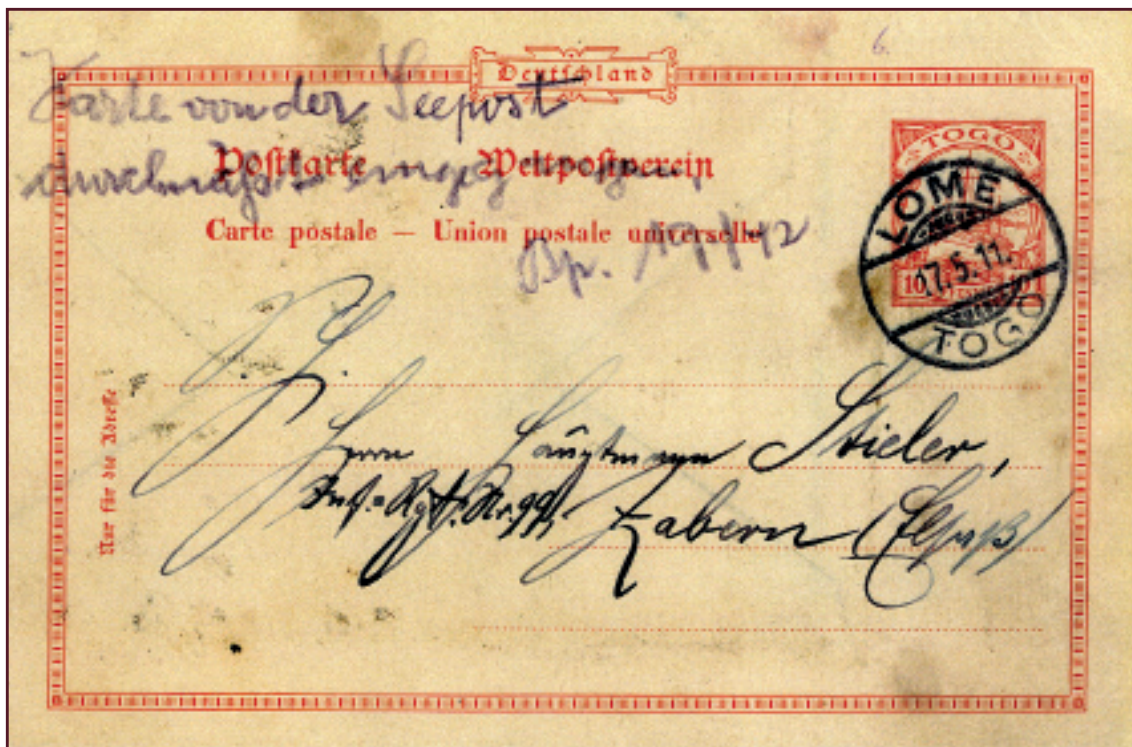 6.
Deutschland
Karte von der Seepost
Postkarte Weltpostverein
Carte postale — Union postale universelle
Bp.
TOGO
10
LOME
17.5.11.
TOGO
Nur für die Adresse
Herrn Hauptmann Stieler,
Inf.-Rgt. Nr. 99,
Zabern (Elsaß)